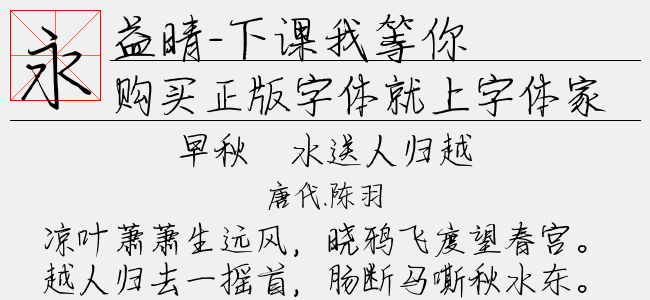 永
益晴-下课我等你
购买正版字体就上字体家
早秋 水送人归越
唐代.陈羽
凉叶萧萧生远风，晓鸦飞度望春宫。
越人归去一摇首，肠断马嘶秋水东。